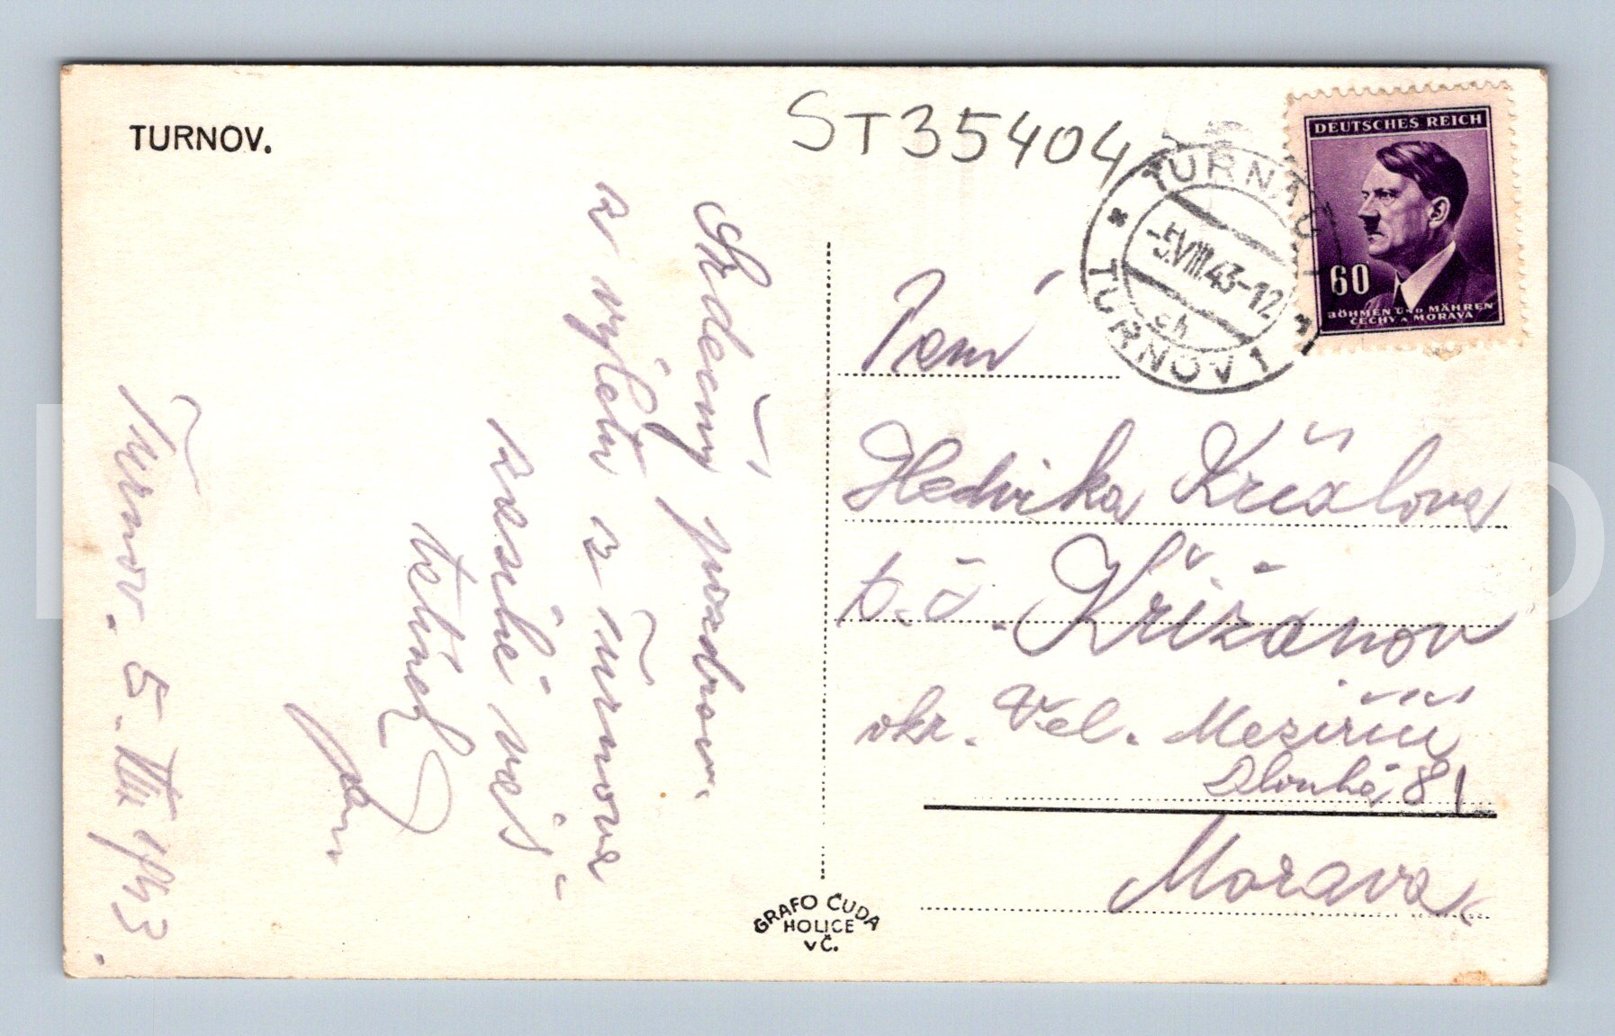 TURNOV.
ST35404
Srdečný pozdrav
z výletu z Turnova
zasílá váš
Jan
Turnov. 5. VIII 1943.
DEUTSCHES REICH
60
BÖHMEN UND MÄHREN
ČECHY A MORAVA
TURNAU 1
-5.VIII.43-12
ch
TURNOV 1
Paní
Hedvika Křížalova
t. č. Křižanov
okr. Vel. Meziříčí
Dlouhá 81
Morava
GRAFO ČUDA
HOLICE
V Č.